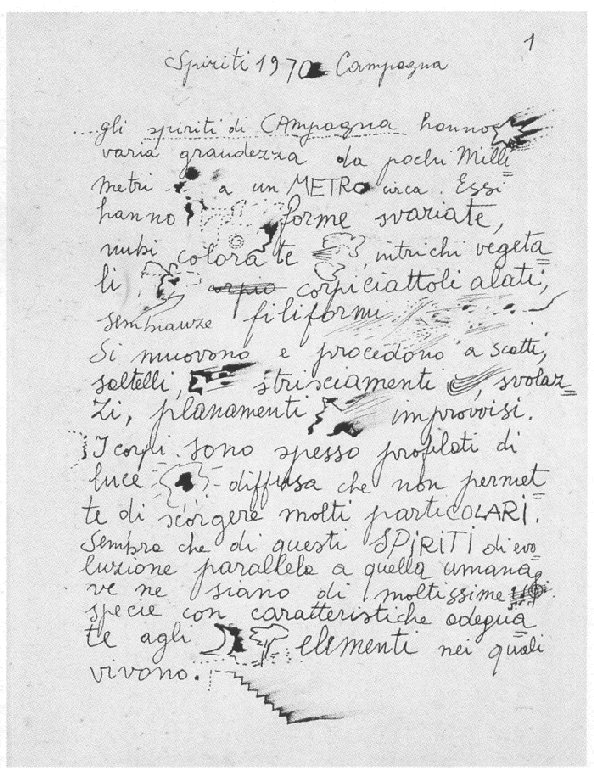 1
Spiriti 1970 Campagna
gli spiriti di CAmpagna hanno
varia grandezza da pochi Milli=
metri e a un METRO circa. Essi
hanno forme svariate,
nubi colorate intrichi vegeta=
li, corpiciattoli alati,
sembianze filiformi
Si muovono e procedono a scatti,
saltelli, strisciamenti, svolaz=
zi, planamenti improvvisi.
I corpi sono spesso profilati di
luce diffusa che non permet=
te di scorgere molti particOLARI.
Sembra che di questi SPiRiTi di evo=
luzione parallela a quella umana
ve ne siano di moltissime
specie con caratteristiche adegua=
te agli elementi nei quali
vivono.